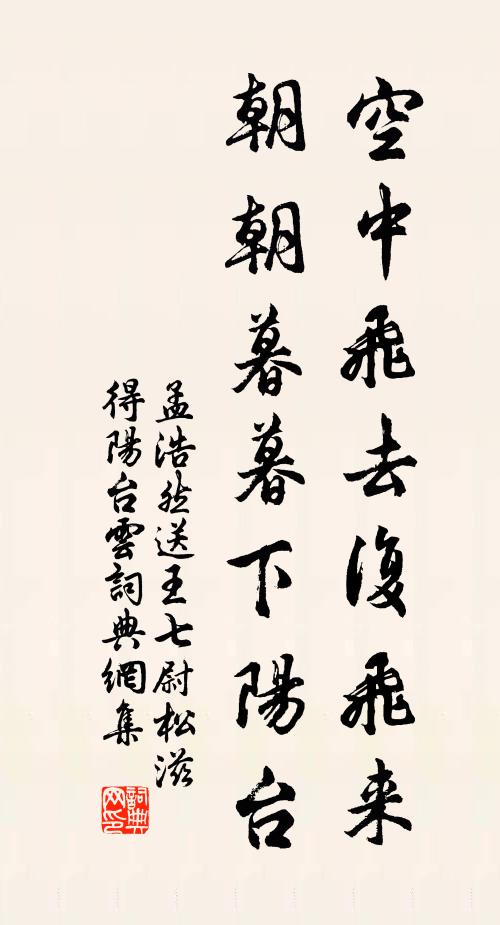 空中飛去復飛来
朝朝暮暮下陽台
孟浩然送王七尉松滋
得陽台雲詞典網集
詞典
网印